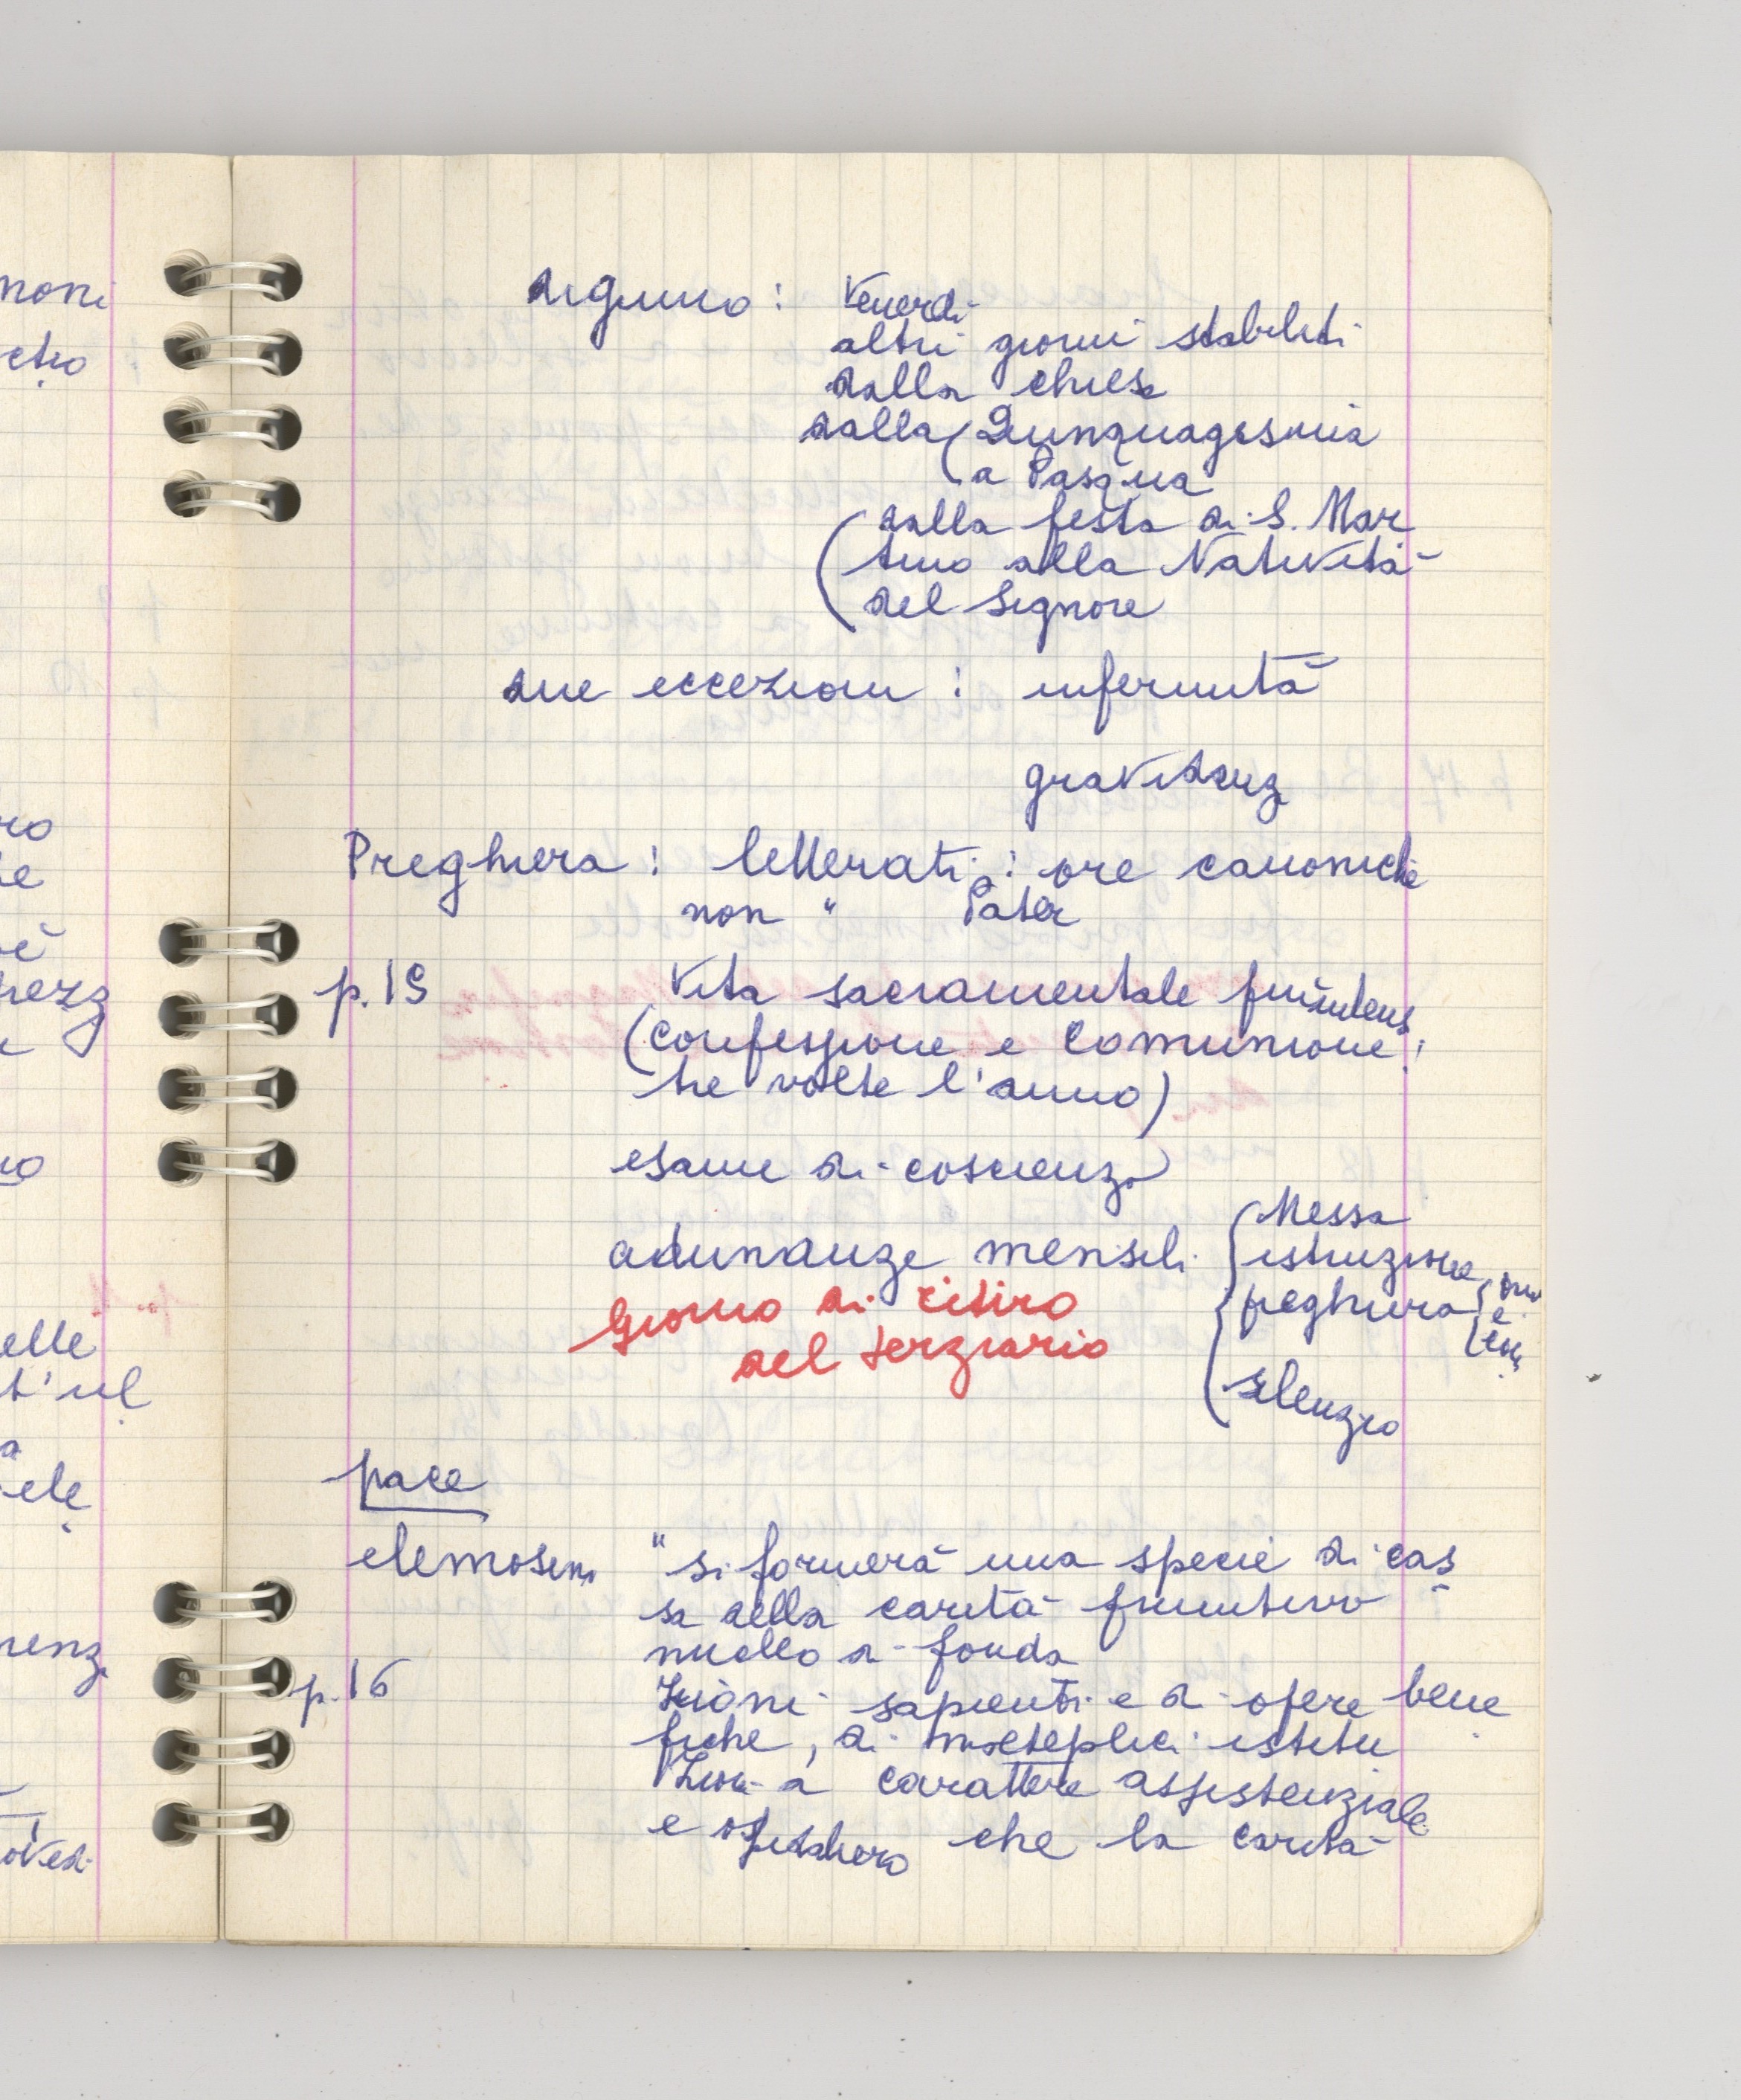 noni
digiuno : Venerdì
altri giorni stabiliti
dalla chiesa
dalla (Quinquagesima
a Pasqua
(dalla festa di S. Mar
tino alla Natività
del Signore
due eccezioni : infermità
gravidanza
Preghiera : letterati : ore canoniche
non " Pater
p. 19 Vita sacramentale più intens
(confessione e comunione :
tre volte l'anno)
esame di coscienza
adunanze mensili { Messa
istruzione
preghiera
silenzio
Giorno di ritiro
del terziario
pace
elemosina "si formerà una specie di cas
sa della carità primitivo
nucleo di fonda
p. 16 zioni sapienti e di opere bene
fiche, di molteplici istitu
zioni a carattere assistenziale
e ospitaliero che la carità
elle